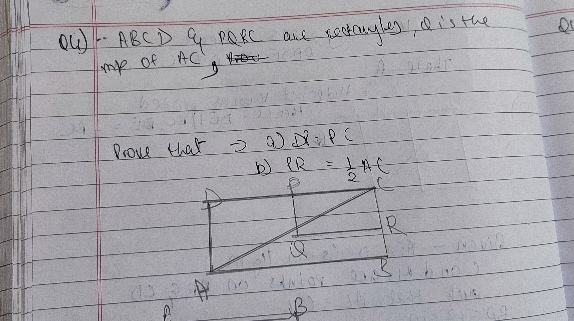 Q4) :- ABCD & PQRC are rectangles, Q is the
mp of AC,
Prove that → a) DP = PC
b) PR = 1/2 AC
D P C
Q R
A B
A B